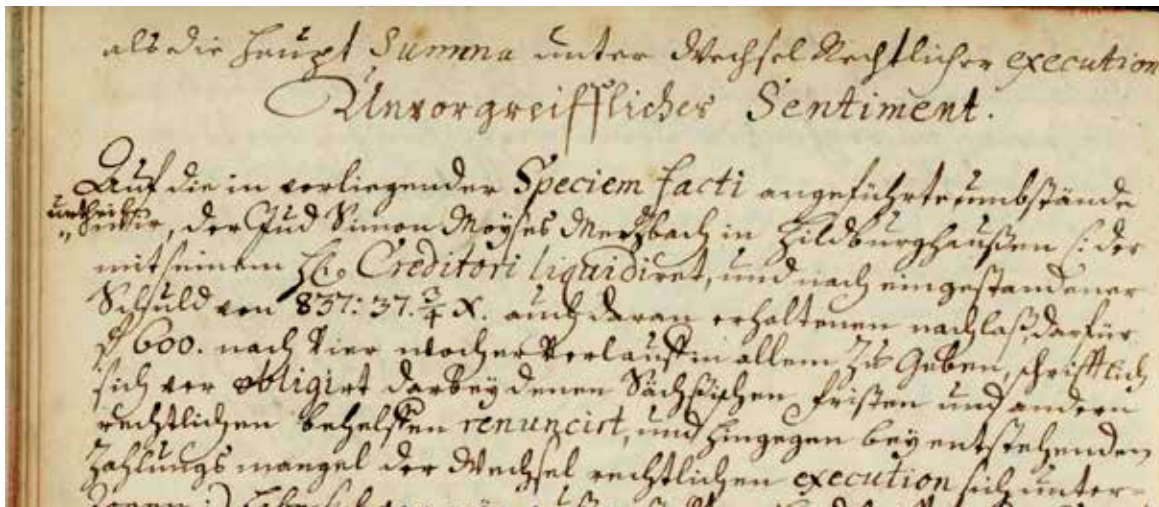 als die Haupt Summa unter Wechsel Rechtlicher execution
Unvorgreiffliches Sentiment.
Auf die in vorliegender Speciem facti angeführte umbstände
urtheile
wir, der Jud Simon Moyses Mertzbach in Hildburghaußen /: der
mit seinem H. Creditori liquidiret, und nach eingestandener
Schuld von 837: 37. 3/4 X. auch daran erhaltenen nachlaß, darfür
f 600. nach Vier wochen Verlauff in allem zu Geben, schrifftlich
sich ver obligirt darbey denen Sächsischen fristen und andern
rechtlichen behelffen renuncirt, und hingegen bey entstehenden
Zahlungs mangel der Wechsel rechtlichen execution sich unter-